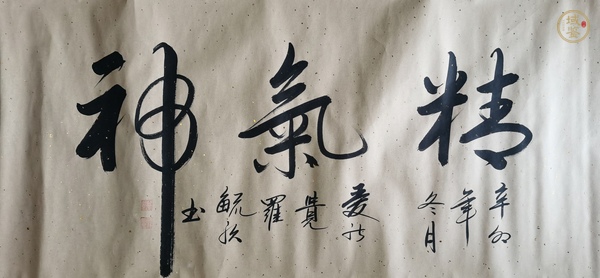 精氣神
辛卯
年
冬月
愛新
覺
羅
毓
书